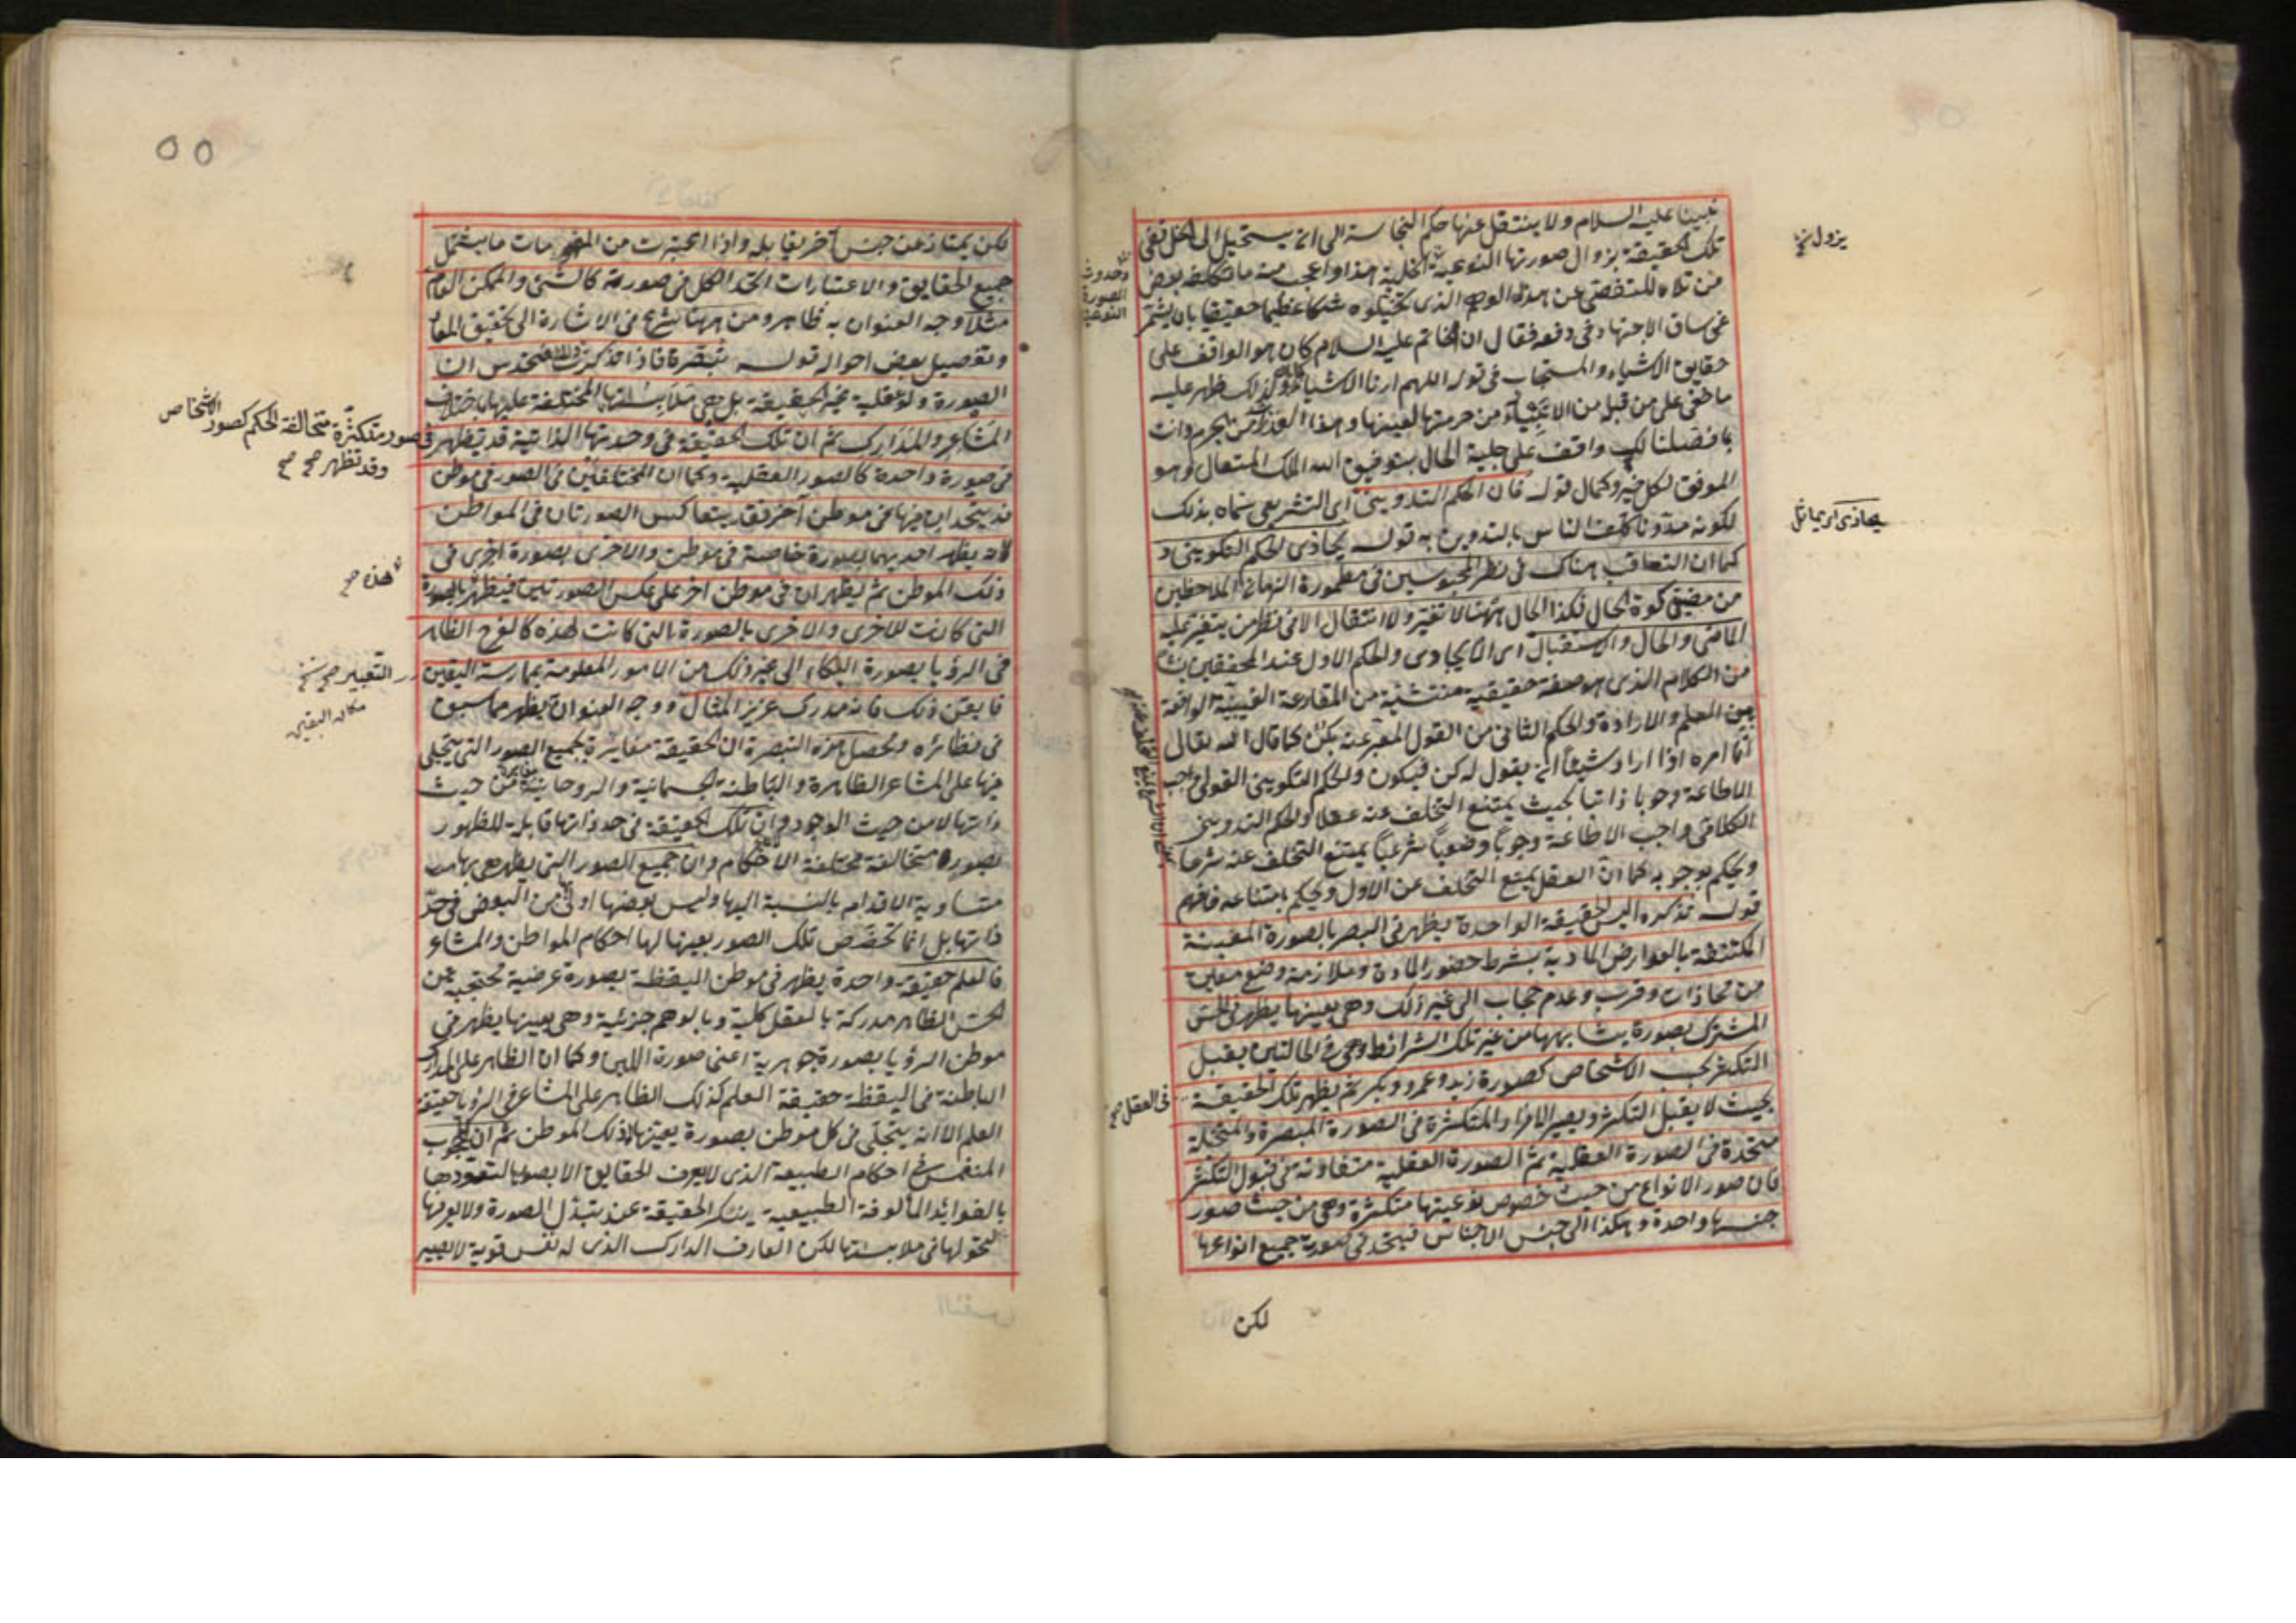 نبينا عليه السلام ولا ينتقل عنها حكم النجاسة الى ان يستحيل الى الخل ففى
تلك الحقيقة بزوال صورتها النوعية الخلية هذا واعجب منه ما تكلفه بعض
من تلاه للتفصى عن هذه الوهم الذى تخيلوه شكا عظيما حقيقيا بان يشمر
عن ساق الاجتهاد فى دفعه فقال ان الخاتم عليه السلام كان هو الواقف على
حقايق الاشياء والمستجاب فى قوله اللهم ارنا الاشياء كما هى ولذلك ظهر عليه
ما خفى على من قبله من الانبياء من حرمتها لعينها وهذا القدر من وانت
بما فصلنا لك واقف على جلية الحال بتوفيق الله الملك المتعال وهو
الموفق لكل خير وكمال قوله فان الحكم التدوينى اى التشريعى سماه بذلك
لكونه مدونا كلف الناس بالتدوين به قوله يحاذى الحكم التكوينى
كما ان التعاقب هناك فى نظر المحبوسين فى مطمورة الزمان الملاحظين
من مضيق كوة الحال فكذا الحال ههنا لا تغير ولا انتقال الا فى نظر من يتغير عليه
الماضى والحال والاستقبال اى الايجادى والحكم الاول عند المحققين
من الكلام الذى هو صفة حقيقية منتشئة من المقارعة الغيبية الواقعة
بين العلم والارادة والحكم الثانى من القول المعبر عنه بكن كما قال الله تعالى
انما امره اذا اراد شيئا ان يقول له كن فيكون والحكم التكوينى القولى واجب
الاطاعة وجوبا ذاتيا بحيث يمتنع التخلف عنه عقلا والحكم التدوينى
الكلامى واجب الاطاعة وجوبا وضعيا شرعيا يمتنع التخلف عنه شرعا
ويحكم بوجوبه كما ان العقل يمنع التخلف عن الاول ويحكم بامتناعه فافهم
قوله تذكره اليس الحقيقة الواحدة يظهر فى البصر بالصورة المعينة
المكتنفة بالعوارض المادية بشرط حضور المادة وملازمة وضع معين
من محاذات وقرب وعدم حجاب الى غير ذلك وهى بعينها يظهر فى الحس
المشترك بصورة يشابهها من غير تلك الشرائط وهى فى الحالتين يقبل
التكثر بحسب الاشخاص كصورة زيد وعمرو وبكر ثم يظهر تلك الحقيقة
بحيث لا يقبل التكثر ويصير الافراد المتكثرة فى الصورة المبصرة والمتخيلة
متحدة فى الصورة العقلية ثم الصورة العقلية متفاوتة فى قبول التكثر
فان صور الانواع من حيث خصوص نوعيتها متكثرة وهى من حيث صور
جنسها واحدة وهكذا الى جنس الاجناس فيتحد فى صورته جميع انواعها
لكن
يزول
وحدوث
الصورة
النوعية
يحاذى اى يماثل
فى العقل صح
٥٥
لكن يمتاز عن جنس آخر يقابله واذا اعتبرت من المفهومات ما يشمل
جميع الحقايق والاعتبارات اتحد الكل فى صورته كالشئ والممكن العام
مثلا وجه العنوان به ظاهر ومن ههنا شرع فى الاشارة الى تحقيق المعاد
وتفصيل بعض احواله قوله تبصرة فاذا تذكرت ذلك فتحدس ان
الصورة ولو عقلية غير الحقيقة بل هى ملابستها المختلفة عليها باختلاف
المشاعر والمدارك ثم ان تلك الحقيقة فى وحدتها الذاتية قد يظهر
فى صورة واحدة كالصور العقلية وكما ان المختلفين فى الصور فى موطن
قد يتحدان فيها فى موطن آخر فقد يتعاكس الصورتان فى المواطن
لانه يظهر احديهما بصورة خاصة فى موطن والاخرى بصورة اخرى فى
ذلك الموطن ثم يظهران فى موطن اخر على عكس الصورتين فيظهر بالصورة
التى كانت للاخرى والاخرى بالصورة التى كانت لهذه كالفرح الظاهر
فى الرؤيا بصورة البكاء الى غير ذلك من الامور المعلومة بممارسة اليقين
فايقن ذلك فانه مدرك عزيز المثال ووجه العنوان يظهر مما سبق
فى نظائره ومحصل هذه التبصرة ان الحقيقة مغايرة لجميع الصور التى يتجلى
فيها على المشاعر الظاهرة والباطنة الجسمانية والروحانية من حيث
ذاتها لا من حيث الوجود وان تلك الحقيقة فى حد ذاتها قابلة للظهور
بصورة متخالفة مختلفة الاحكام وان جميع الصور التى يظهر هى بها
متساوية الاقدام بالنسبة اليها وليس بعضها اولى من البعض فى حد
ذاتها بل انما تخصص تلك الصور بعينها لها احكام المواطن والمشاعر
فالعلم حقيقة واحدة يظهر فى موطن اليقظة بصورة عرضية تحتجب عن
الحس الظاهر مدركة بالعقل كلية وبالوهم جزئية وهى بعينها يظهر فى
موطن الرؤيا بصورة جوهرية اعنى صورة اللبن وكما ان الظاهر على المدارك
الباطنة فى اليقظة حقيقة العلم كذلك الظاهر على المشاعر فى الرؤيا حقيقة
العلم الا انه يتجلى فى كل موطن بصورة يعينها ذلك الموطن ثم ان المحجوب
المنغمس فى احكام الطبيعة الذى لا يعرف الحقايق الا بصور التعودها
بالعوائد المألوفة الطبيعية ينكر الحقيقة عند تبدل الصورة ولا يعرفها
لتحولها فى ملابستها لكن العارف الدارك الذى له نفس قوية لا يصير
فى صور متكثرة متخالفة الحكم كصور الاشخاص
وقد تظهر صح صح
هذه صح
التعبير صح
مكان اليقين